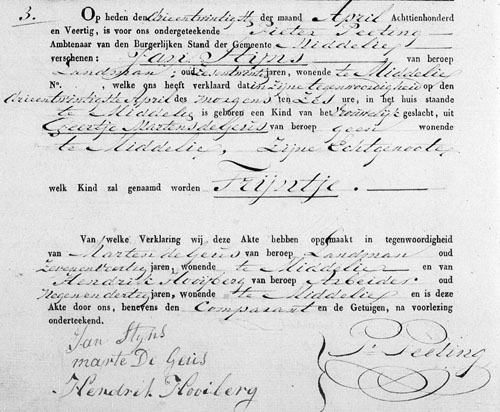 3. Op heden den drieentwintigste der maand April Achttienhonderd
en Veertig, is voor ons ondergeteekende Pieter Peeling
Ambtenaar van den Burgerlijken Stand der Gemeente Middelie
verschenen: Jan Stijns van beroep
Landman, oud jaren, wonende te Middelie
N°. , welke ons heeft verklaard dat in zijne tegenwoordigheid op den
drieentwintigste April des morgens ten zes ure, in het huis staande
te Middelie is geboren een Kind van het Vrouwelijk geslacht, uit
Geertje Martens de Geus van beroep geen wonende
te Middelie, Zijne Echtgenoote
welk Kind zal genaamd worden Trijntje.
Van welke Verklaring wij deze Akte hebben opgemaakt in tegenwoordigheid
van Marten de Geus van beroep Landman oud
Zevenenveertig jaren, wonende te Middelie en van
Hendrik Hooijberg van beroep Arbeider oud
Negenendertig jaren, wonende te Middelie en is deze
Akte door ons, benevens den Comparant en de Getuigen, na voorlezing
onderteekend.
Jan Stijns
marte De Geus
Hendrik Hooiberg
Pr Peeling